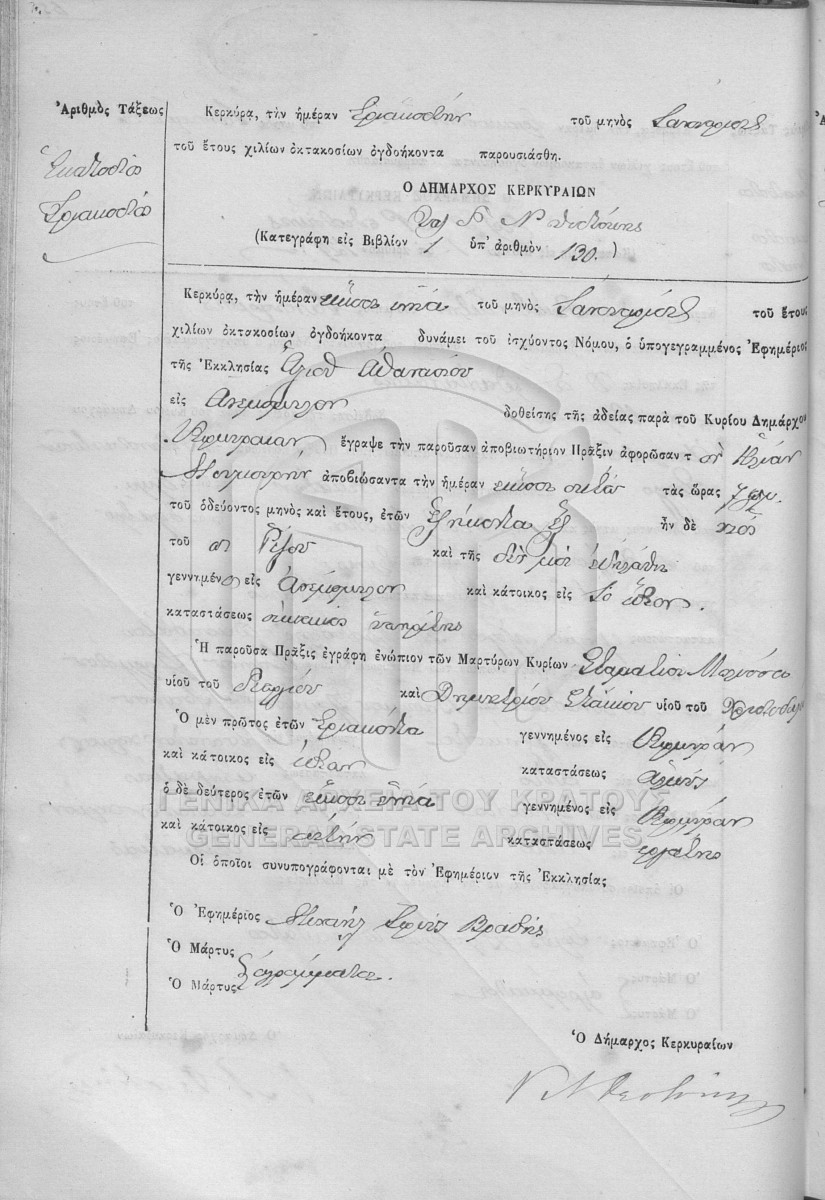 Ἀριθμὸς Τάξεως
Ἑκατοστὸν
Τριακοστὸν
Κερκύρα, τὴν ἡμέραν Τριακοστὴν τοῦ μηνὸς Ἰανουαρίου
τοῦ ἔτους χιλίων ὀκτακοσίων ὀγδοήκοντα παρουσιάσθη.
Ο ΔΗΜΑΡΧΟΣ ΚΕΡΚΥΡΑΙΩΝ
(Κατεγράφη εἰς Βιβλίον 1 ὑπ' ἀριθμὸν 130.)
Κερκύρα, τὴν ἡμέραν εἴκοσι ἐννέα τοῦ μηνὸς Ἰανουαρίου τοῦ ἔτους
χιλίων ὀκτακοσίων ὀγδοήκοντα δυνάμει τοῦ ἰσχύοντος Νόμου, ὁ ὑπογεγραμμένος Ἐφημέριος
τῆς Ἐκκλησίας Ἁγίου Ἀθανασίου
εἰς Ἀνεμόμυλον δοθείσης τῆς ἀδείας παρὰ τοῦ Κυρίου Δημάρχου
Κερκυραίων ἔγραψε τὴν παροῦσαν ἀποβιωτήριον Πρᾶξιν ἀφορῶσαν τὸν Ἠλίαν
ἀποβιώσαντα τὴν ἡμέραν εἴκοσι ὀκτὼ τὰς ὥρας 7
τοῦ ὁδεύοντος μηνὸς καὶ ἔτους, ἐτῶν ἑξήκοντα ἓξ ἦν δὲ υἱὸς
τοῦ π Ρίζου καὶ τῆς δὲν μοὶ ἐδηλώθη
γεννημένος εἰς Ἀνεμόμυλον καὶ κάτοικος εἰς τὸ ἴδιον.
καταστάσεως οἰκιακὸς ὑπηρέτης
Ἡ παροῦσα Πρᾶξις ἐγράφη ἐνώπιον τῶν Μαρτύρων Κυρίων Σταματίου
υἱοῦ τοῦ καὶ Δημητρίου υἱοῦ τοῦ Χριστοδούλου
Ὁ μὲν πρῶτος ἐτῶν τριάκοντα γεννημένος εἰς Κέρκυραν
καὶ κάτοικος εἰς ἰδίαν καταστάσεως ἁλιεὺς
ὁ δὲ δεύτερος ἐτῶν εἴκοσι ἐννέα γεννημένος εἰς Κέρκυραν
καὶ κάτοικος εἰς αὐτὴν καταστάσεως ἐργάτης
Οἱ ὁποῖοι συνυπογράφονται μὲ τὸν Ἐφημέριον τῆς Ἐκκλησίας
Ὁ Ἐφημέριος Μιχαὴλ Ἱερεὺς Βραδῆς
Ὁ Μάρτυς
ἀγράμματοι.
Ὁ Μάρτυς
Ὁ Δήμαρχος Κερκυραίων
ΓΕΝΙΚΑ ΑΡΧΕΙΑ ΤΟΥ ΚΡΑΤΟΥΣ
GENERAL STATE ARCHIVES